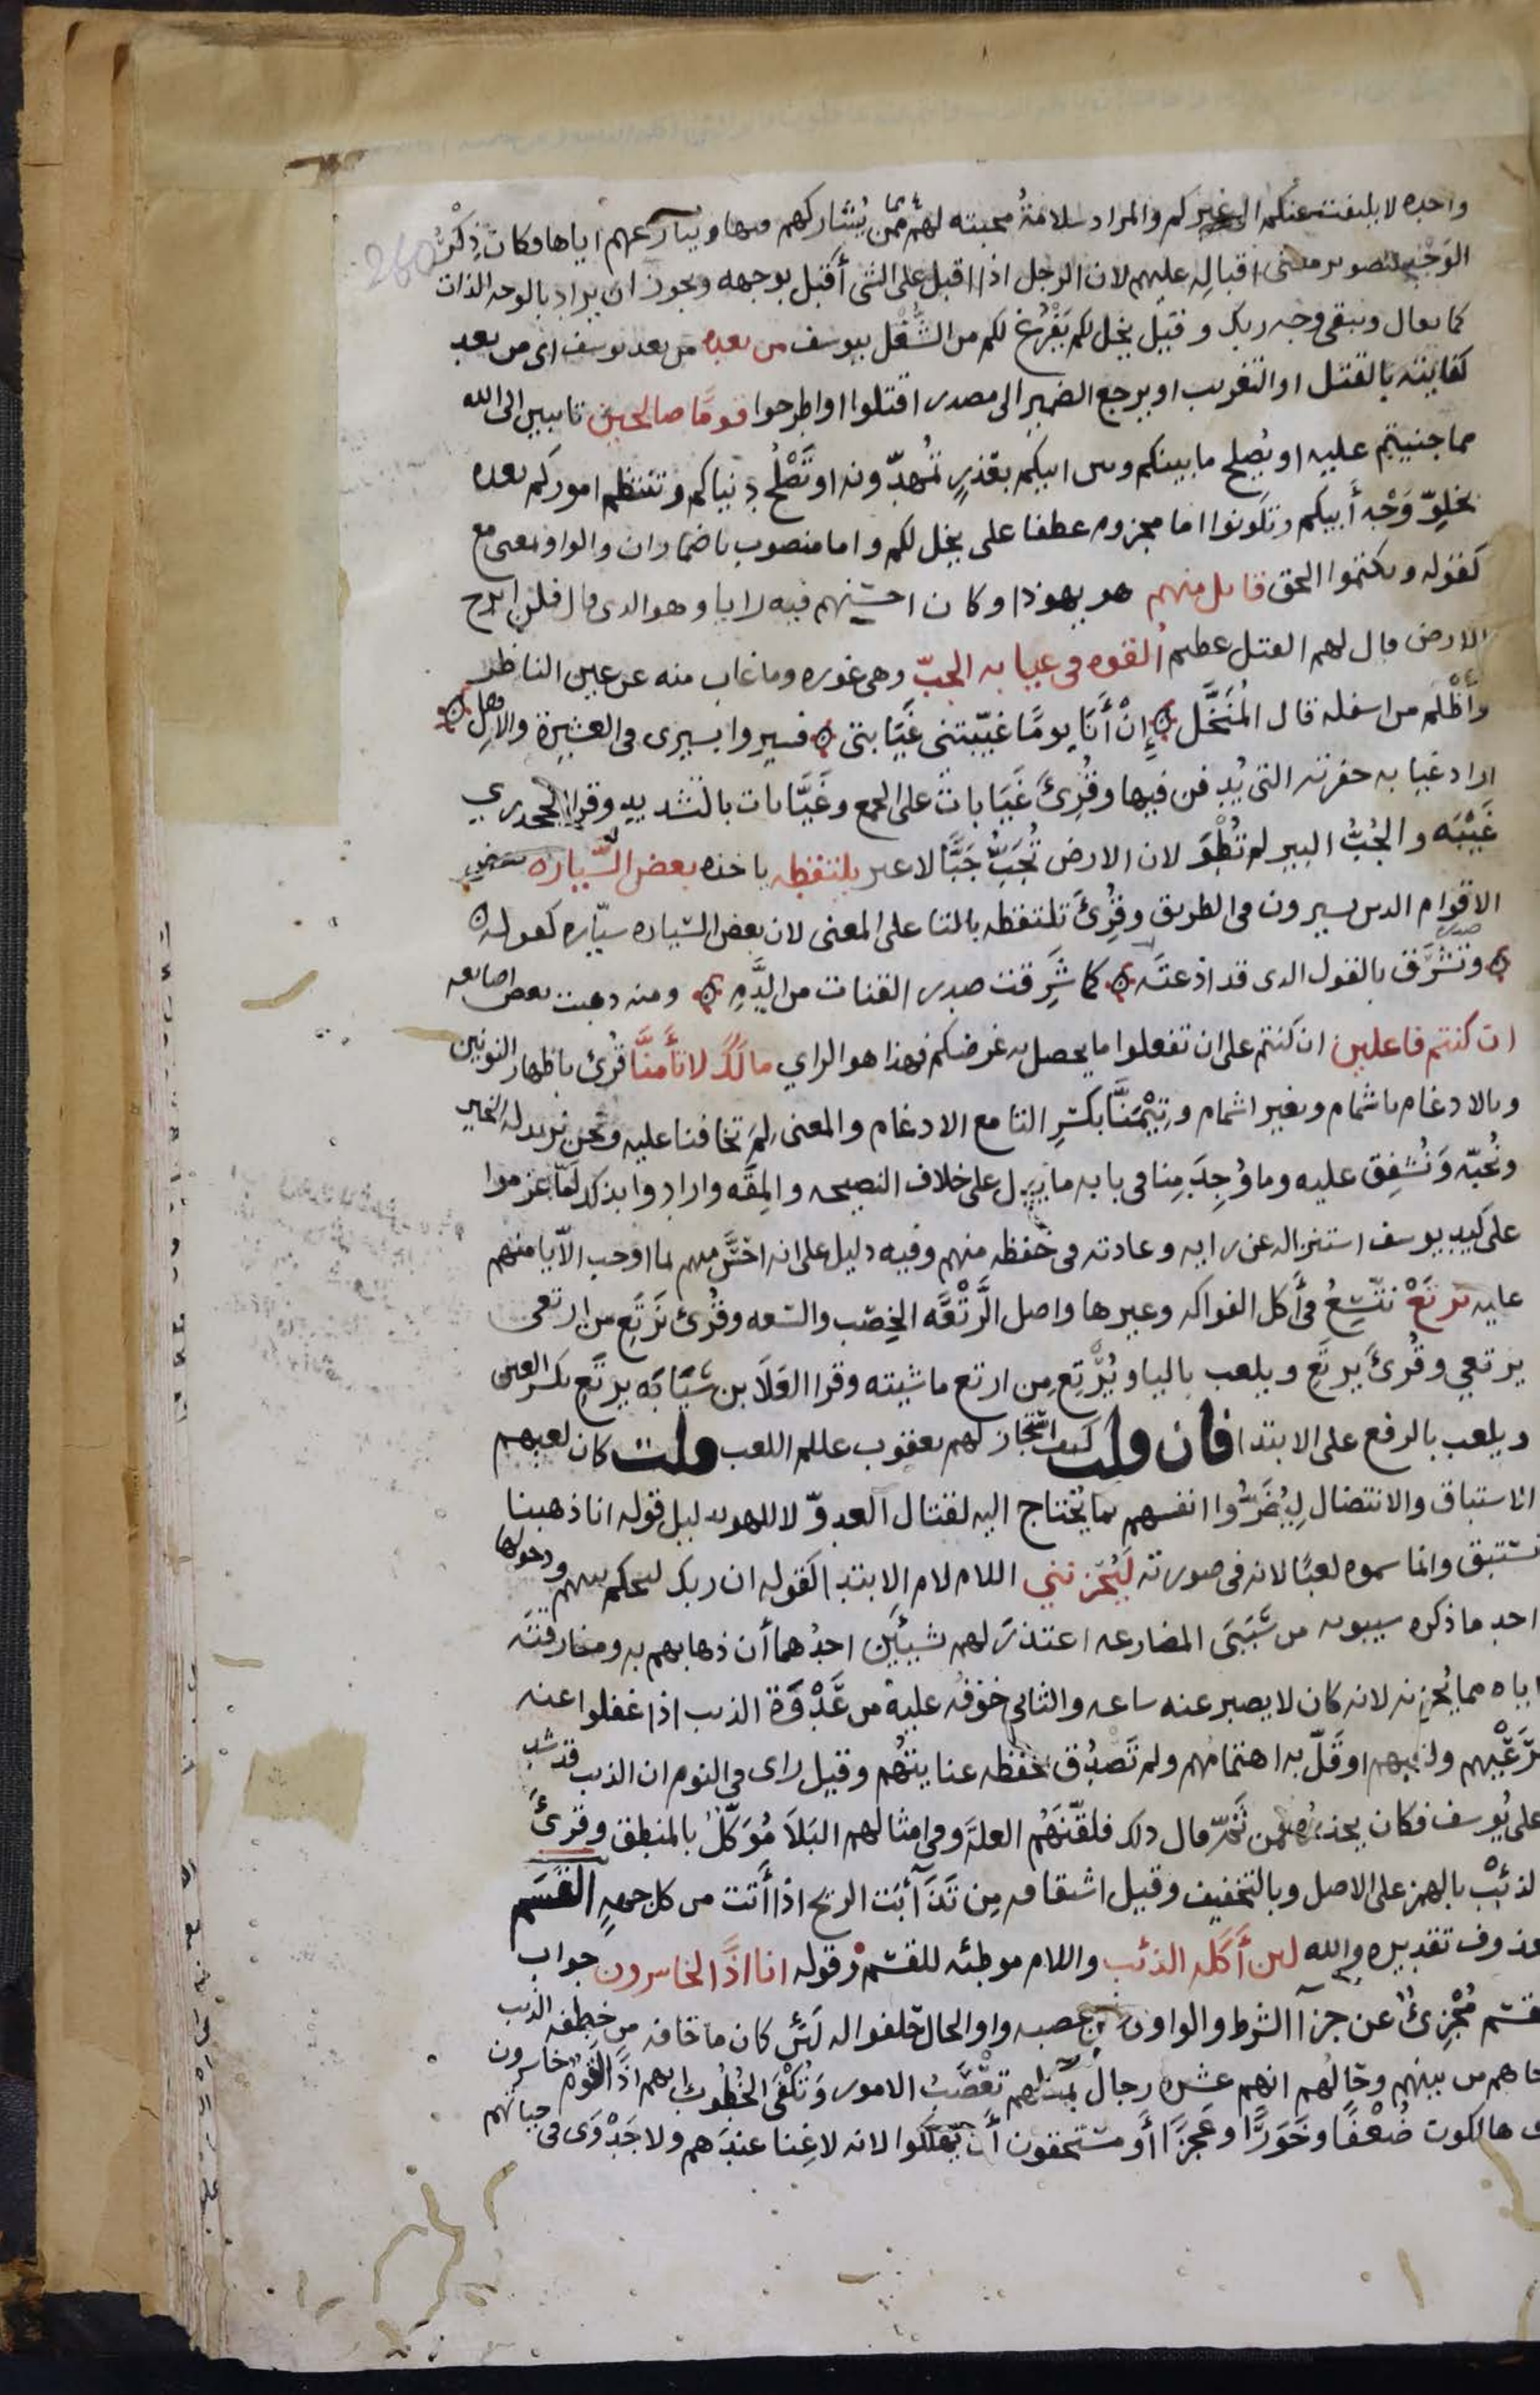 واحده لا يلتفت عنكم الى غيركم والمراد سلامةُ محبته لهم ممن يُشاركهم فيها وينازعهم اياها فكان ذِكْرُ
الوَجْهِ لتصوير معنى اقبالِه عليهم لان الرجل اذا اقبل على الشي أقبل بوجهه ويجوز ان يراد بالوجه الذات
كما يعال ويبقى وجه ربك وقيل يخل لكم يَفْرُغ لكم من الشُّغْل بيوسف من بعده من بعد يوسف اى من بعد
كفايته بالقتل او التغريب او يرجع الضمير الى مصدر اقتلوا او اطرحوا قومًا صالحين تايبين الى الله
مما جنيتم عليه او يُصلح ما بينكم وبين ابيكم بعُذرٍ تُمهّدونه او تَصْلُح دنياكم وتنتظم اموركم بعده
بخلوّ وَجْه أبيكم وتكونوا اما مجزوم عطفا على يخل لكم واما منصوب باضمار ان والواو بمعنى مع
كقوله وتكتموا الحق قايل منهم هو يهوذا وكان احسنهم فيه رايا وهو الذى قال فلن ابرح
الارض قال لهم القتل عظيم ألقوه فى غيابه الجبّ وهى غوره وما غاب منه عن عين الناظر
وأظْلم من اسفله قال المُنَخَّل إِنْ أَنَا يومًا غيّبتنى غَيَابتى فسيروا بسيرى فى العشيرة والاهل
اراد غيابه حفرته التى يُدفن فيها وقُرِئَ غَيَابات على الجمع وغَيَّابات بالتشديد وقرا الجحدري
غَيْبَه والجُبُّ البير لم تُطْوَ لان الارض تُجَبُّ جَبًّا لا غير يلتقطه ياخذه بعض السّياره بعض
الاقوام الذين يسيرون فى الطريق وقُرِئَ تلتقطه بالتا على المعنى لان بعض السّياره سيّاره كقوله
وتَشْرَق بالقول الذى قد اذعتَه كما شَرِقت صدر القنات من الدَّمِ ومنه ذهبت بعض اصابعه
ان كنتم فاعلين ان كنتم على ان تفعلوا ما يحصل به غرضكم فهذا هو الراي مالك لا تأمنَّا قُرئ باظهار النونين
وبالادغام باشمام وبغير اشمام وتِيْمَنَّا بكسرِ التا مع الادغام والمعنى لِمَ تخافنا عليه ونحن نريد له الخير
ونُحبّه وَنُشفِق عليه وما وُجِدَ مِنا فى بابه ما يدل على خلاف النصيحه والمِقَه وارادوا بذلك لَمّا عزموا
على كيد يوسف استنزاله عن رايه وعادته فى حفظه منهم وفيه دليل على انه احسَّ منهم لما اوجب الّا يامنهم
عليه نرتَعْ نتّسِعُ فى أكل الفواكه وغيرها واصل الرَّتْعَه الخِصْب والسّعه وقُرئ نَرْتَعِ من ارتعى
يرتعي وقُرئَ يرتَع ويلعب باليا ويُرْتِع مِن ارتع ماشيته وقرا العَلَا بن سَيَابَه يرتَعِ بكسر العين
ويلعب بالرفع على الابتدا فان قلت كيف استجاز لهم يعقوب عللم اللعب قلت كان لعبهم
الاستباق والانتضال لِيُضَرُّوا انفسهم بما يُحتاج اليه لقتال العدوّ لا للهو بدليل قوله انا ذهبنا
نستبق وانما سموه لعبًا لانه فى صورته لَيَحْزنني اللام لام الابتدا كقوله ان ربك ليحكم بينهم ودخولها
احد ما ذكره سيبويه من سَبَبَى المضارعه اعتذرَ لهم بشيئَين احدُهما أن ذهابهم به ومفارقته
اياه مما يُحزنه لانه كان لا يصبر عنه ساعه والثانى خوفُه عليه من عَدْوَة الذيب اذا غفلوا عنه
برَعْيِهم ولعبهم او قَلّ به اهتمامُهم ولم تَصدُق بحفظه عنايتهُم وقيل راى فى النوم ان الذيب قد شد
على يُوسف فكان يحذره فمن ثَمّ قال ذلك فلقّنَهُم العلة وفى امثالهم البَلَا مُوَكّلٌ بالمنطق وقُرئَ
لذئْب بالهمز على الاصل وبالتخفيف وقيل اشتقاقه مِن تَذَآأبَت الريح اذا أتت من كل جهةٍ القَسَم
محذوف تقديره والله لين أَكَلَه الذئب واللام موطئه للقسم وقوله انا اذًا لخاسرون جواب
لقسم مُجْزِئٌ عن جزآ الشرط والواو فى ونحن عصبه واو الحال حَلفوا له لَئن كان ما خافه من خطفه الذيب
اخاهم من بينهم وحَالُهم انهم عشره رجال بمثلهم تعْصَبُ الامور وتُكْفَى الخُطُوبُ انهم اذًا لقومٌ خاسرون
اى هالكون ضُعْفًا وخَوَرًا وعَجزًا أو مستحقون أن يَهلكوا لانه لا غِنا عندهم ولا جَدْوَى فى حياتهم